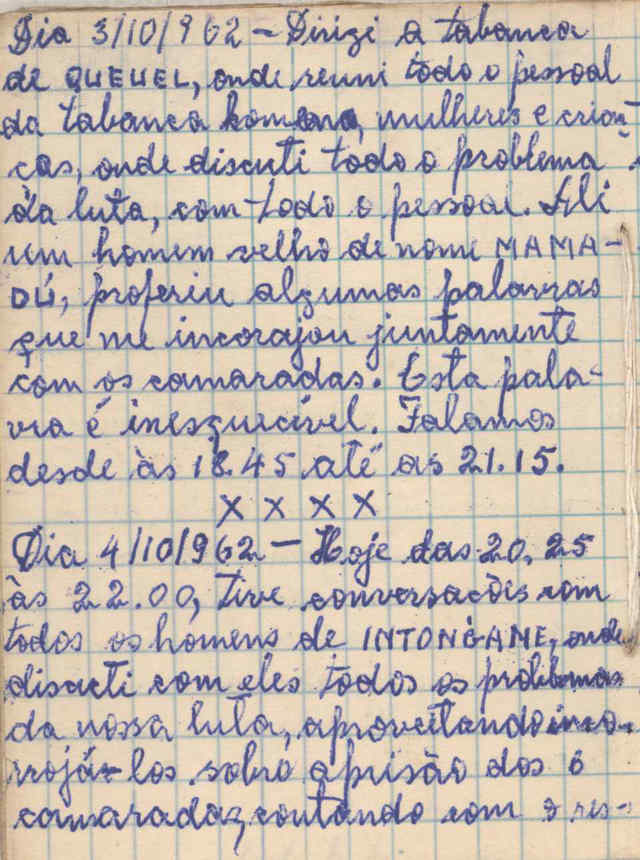 Dia 3/10/962 - Dirigi a tabanca
de QUEUEL, onde reuni todo o pessoal
da tabanca homens, mulheres e crian-
ças, onde discuti todo o problema
da luta, com todo o pessoal. Ali
um homem velho de nome MAMA-
DÚ, proferiu algumas palavras
que me incorajou juntamente
com os camaradas. Esta pala-
vra é inesquecível. Falamos
desde às 18.45 até as 21.15.
X X X X
Dia 4/10/962 - Hoje das 20,25
às 22.00, tive conversações com
todos os homens de INTONGANE, onde
discuti com eles todos os problemas
da nossa luta, aproveitando inco-
rrojá-los sobre a prisão dos 6
camaradas, contando com o res-